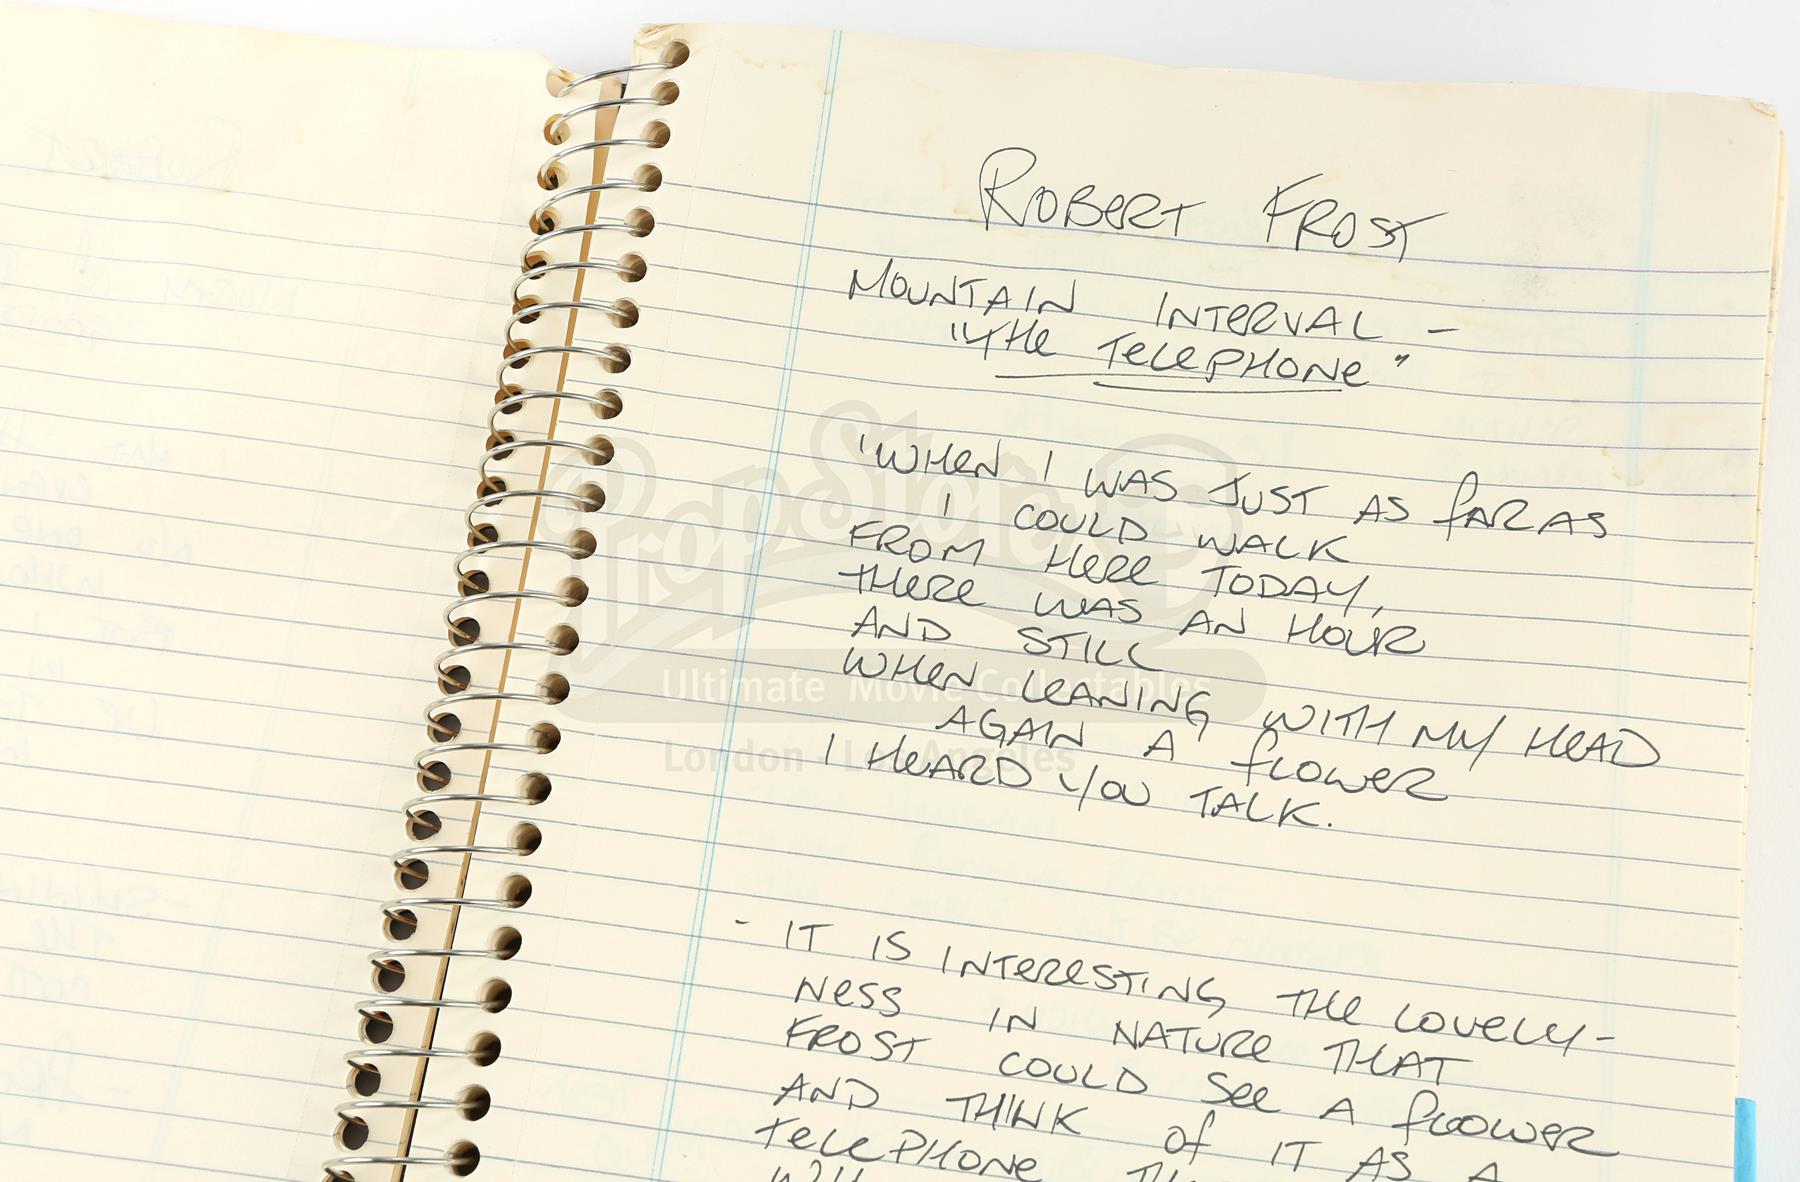 ROBERT FROST
MOUNTAIN INTERVAL -
"THE TELEPHONE"
'WHEN I WAS JUST AS FAR AS
I COULD WALK
FROM HERE TODAY,
THERE WAS AN HOUR
AND STILL
WHEN LEANING WITH MY HEAD
AGAIN A FLOWER
I HEARD YOU TALK.
- IT IS INTERESTING THE LOVELY-
NESS IN NATURE THAT
FROST COULD SEE A FLOWER
AND THINK OF IT AS A
TELEPHONE
PropStore
Ultimate Movie Collectables
London - Los Angeles